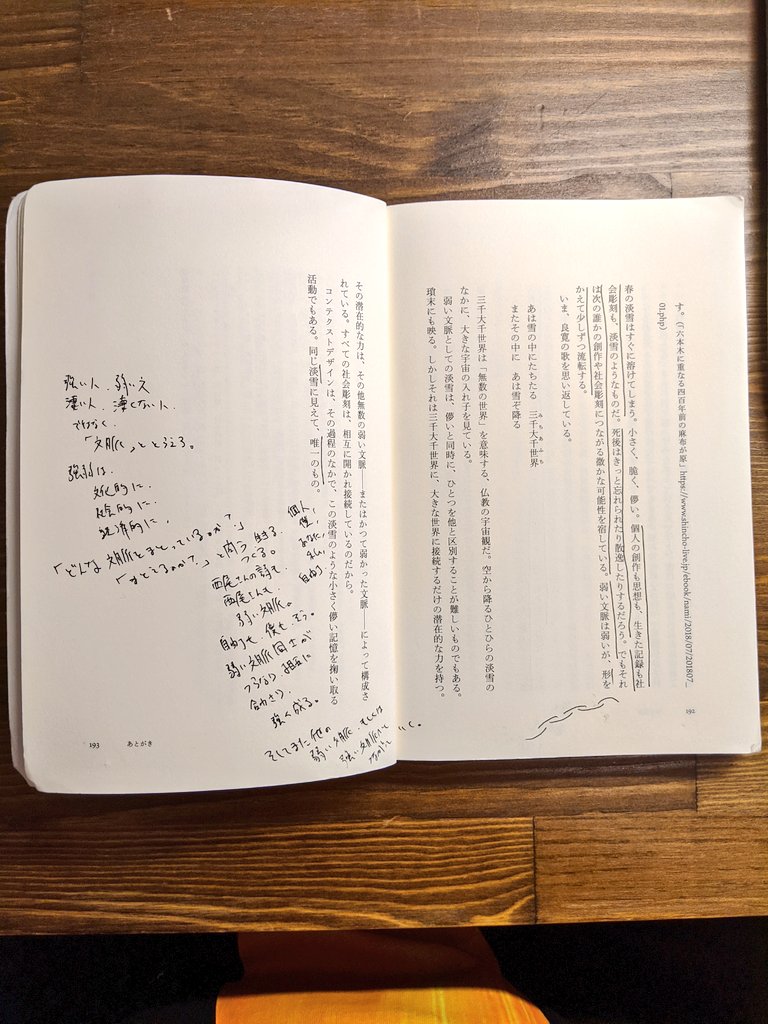 す。（「六本木に重なる四百年前の麻布が原」https://www.shincho-live.jp/ebook/nami/2018/07/201807_
01.php）
春の淡雪はすぐに溶けてしまう。小さく、脆く、儚い。個人の創作も思想も、生きた記録も社
会彫刻も、淡雪のようなものだ。死後はきっと忘れられたり散逸したりするだろう。でもそれ
は次の誰かの創作や社会彫刻につながる微かな可能性を宿している。弱い文脈は弱いが、形を
かえて少しずつ流転する。
いま、良寛の歌を思い返している。
あは雪の中にたちたる　三千大千世界
みちあふち
またその中に　あは雪ぞ降る
三千大千世界は「無数の世界」を意味する、仏教の宇宙観だ。空から降るひとひらの淡雪の
なかに、大きな宇宙の入れ子を見ている。
弱い文脈としての淡雪は、儚いと同時に、ひとつを他と区別することが難しいものでもある。
瑣末にも映る。しかしそれは三千大千世界に、大きな世界に接続するだけの潜在的な力を持つ。
192
その潜在的な力は、その他無数の弱い文脈――またはかつて弱かった文脈――によって構成さ
れている。すべての社会彫刻は、相互に開かれ接続しているのだから。
コンテクストデザインは、その過程のなかで、この淡雪のような小さく儚い記憶を掬い取る
活動でもある。同じ淡雪に見えて、唯一のもの。
強い人、弱い人
凄い人、凄くない人、
ではなく
「文脈」ととらえる。
強弱は、
文化的に、
社会的に、
経済的に、
「どんな文脈をまとっているのか？」
「まとえるのか？」と問う
個人、
僕、
あなた、
私、
自由丁
西尾さんの詩も
西尾さんも、
弱い文脈。
自由丁も、僕も、そう。
弱い文脈同士が
つらなり、相互に
合わさり、
強く成る。
そしてまた他の
弱い文脈、もしくは
強い文脈へと
193　あとがき